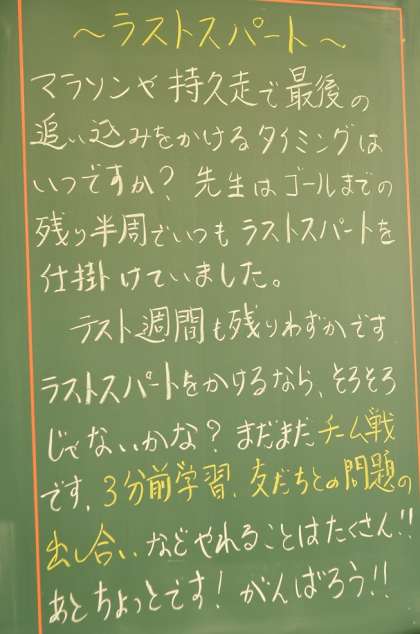 ～ラストスパート～
マラソンや持久走で最後の
追い込みをかけるタイミングは
いつですか？先生はゴールまでの
残り半周でいつもラストスパートを
仕掛けていました。
テスト週間も残りわずかです
ラストスパートをかけるなら、そろそろ
じゃないかな？まだまだチーム戦
です。3分前学習、友だちとの問題の
出し合いなどやれることはたくさん!!
あとちょっとです！がんばろう!!